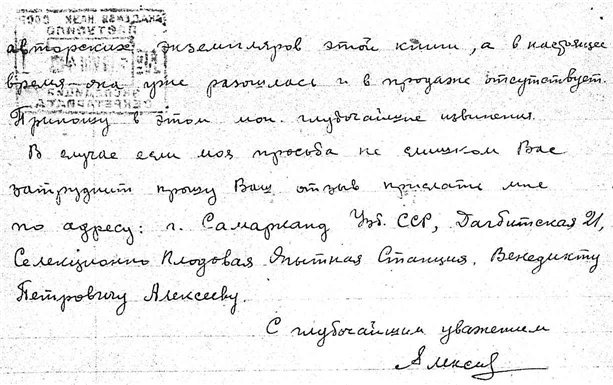 авторских экземпляров этой книги, а в настоящее
время она уже разошлась и в продаже отсутствует.
Приношу в этом мои глубочайшие извинения.
В случае если моя просьба не слишком Вас
затруднит прошу Ваш отзыв прислать мне
по адресу: г. Самарканд Узб. ССР, Дагбитская 21,
Селекционно Плодовая Опытная Станция, Венедикту
Петровичу Алексееву.
С глубочайшим уважением
Алексе